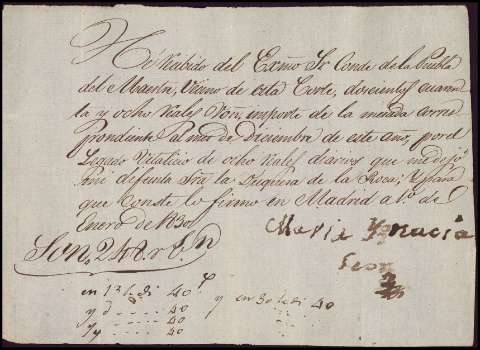 He Recibido del Exmo Sr Conde de la Puebla
del Maestre, Vecino de esta Corte, doscientos cuaren
ta y ocho reales Von, importe de la mesada corres
prondiente al mes de Diciembre de este año, por el
Legado Vitalicio de ocho reales diarios que me dejó
mi defunta Sra la Duquesa de la Roca; y para
que Conste lo firmo en Madrid a 1o de
Enero de 1830
Son, 248. rs. Vn
Maria Ygnacia
Leon
en 13 de di 40 y en 30 de di 40
y d 40
40
y 40